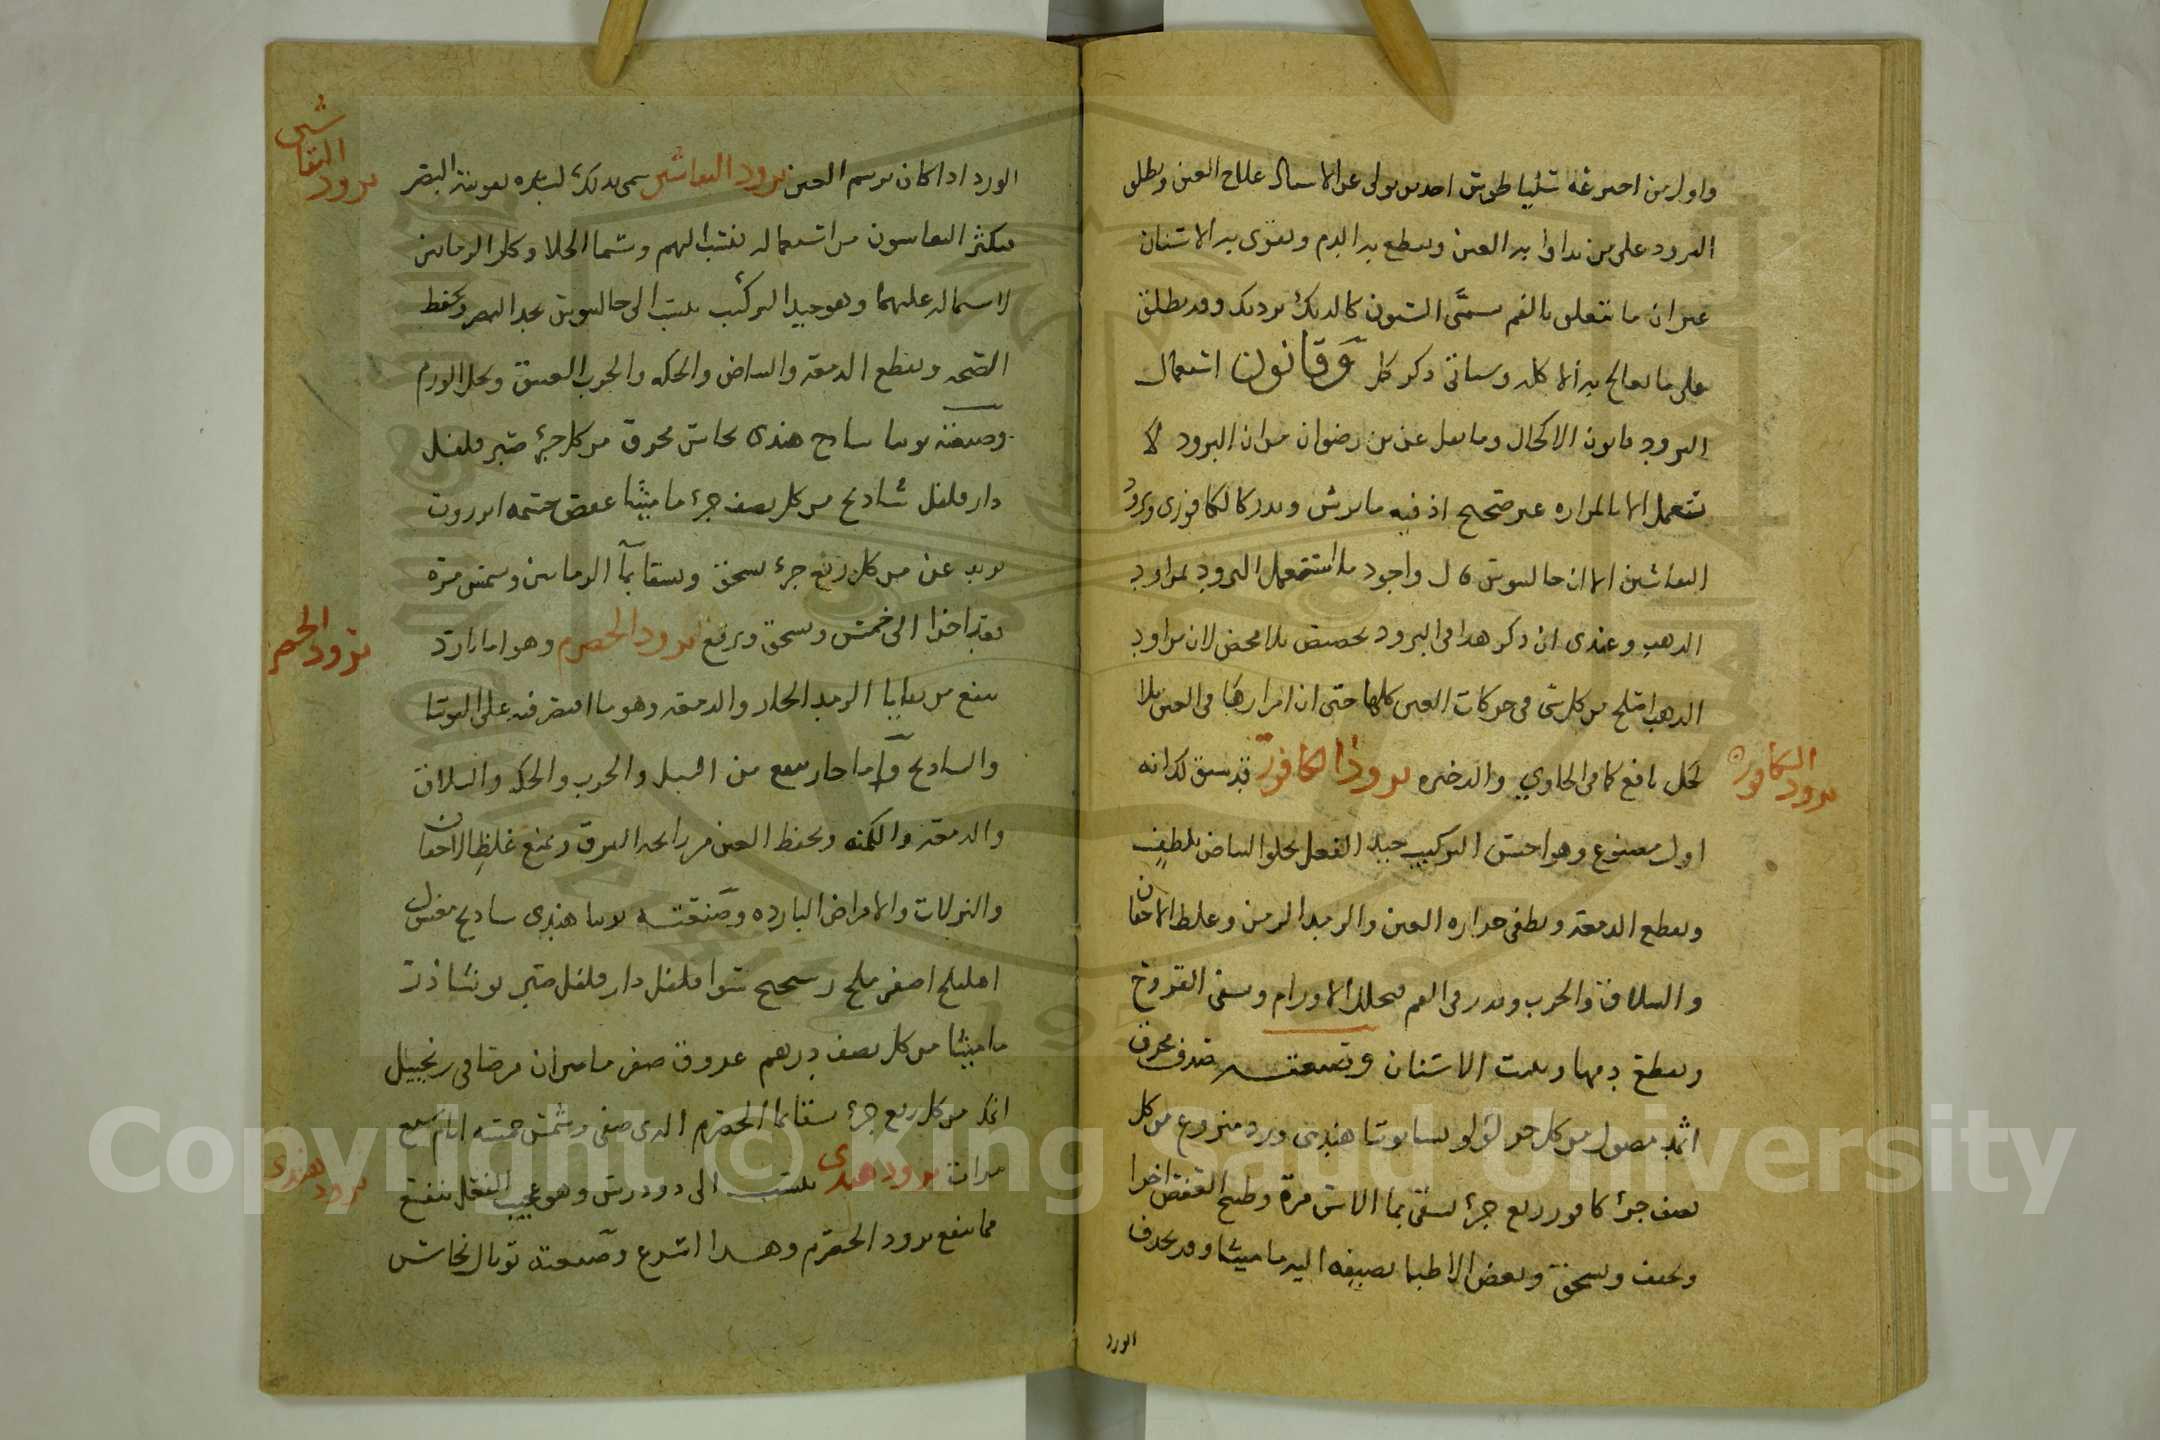 واول من اخترعه شلياطوش احد من تولى عن الاسال علاج العين ويطلق
البرود على من يداوا به العين ويقطع به الدم ويقوى به الاسنان
غير ان ما يتعلق بالفم يسمى السنون كالديك برديك وقد يطلق
على ما يعالج به الاكله وسياتى ذكر كل وقانون استعمال
البرود قانون الاكحال وما نقل عن بن رضوان من ان البرود لا
تستعمل الا بالمراره غير صحيح اذ فيه ما يرش ويذر كالكافورى وبرود
النقاشين الا ان جالينوس قال واجود ما استعمل البرود بمراود
الذهب وعندى ان ذكر هذا فى البرود تخصيص بلا مخصص لان مراود
الذهب اصلح من كل شى فى حركات العين كلها حتى ان امرارها فى العين بلا
كحل نافع كما فى الحاوي والذخيره برود الكافور قد سبق لك انه
برود الكافوره
اول مصنوع وهو احسن التركيب جيد الفعل يجلو البياض بلطف
ويقطع الدمعه ويطفى حراره العين والرمد المزمن وغلظ الاجفان
والسلاق والجرب ويذر فى الفم فيحلل الاورام وينقى القروح
ويقطع دمها ويثبت الاسنان وصنعته صدف محرق
اثمد مصول من كل جزء لولو توتيا هندى ورد منزوع من كل
نصف جزء كافور ربع جزء يسقى بما الاس مرة وطبخ العفص اخرا
ويجفف ويسحق وبعض الاطبا يضيف اليه ماميثا وقد يحذف
الورد
الورد اذا كان برسم العين برود النقاشين سمى بذلك لشده تقويته البصر
برود النقاشين
فيكثر النقاشون من استعماله فنسب اليهم وسما الجلا وكحل الرمانين
لاشتماله عليهما وهو جيد التركيب ينسب الى جالينوس يحد البصر ويحفظ
الصحه ويقطع الدمعه والبياض والحكه والجرب العتيق ويحلل الورم
وصنعته توتيا سادج هندى نحاس محرق من كل جزء صبر فلفل
دار فلفل شادنج من كل نصف جزء ماميثا عفص انزروت
من كل ربع جزء يسحق ويسقا بما الرمانين ويشمس مرة
بعد اخرا الى خمس ويسحق ويرفع برود الحصرم وهو اما بارد
برود الحصرم
ينفع من بقايا الرمد الحار والدمعه وهو ما اقتصر فيه على التوتيا
والسادنج واما حار ينفع من السبل والجرب والحكه والسلاق
والدمعه والكمنه ويحفظ العين من رائحه العرق ويمنع غلظ الاجفان
والنزلات والامراض البارده وصنعته توتيا هندى سادنج مغسول
اهليلج اصفر ملح سوا فلفل دار فلفل صبر نوشاذر
ماميثا من كل نصف درهم عروق صفر ماميران مرصافى زنجبيل
من كل ربع جزء يسقا بما الحصرم الذى صفى وشمس خمسه ايام سبع
مرات برود هندى ينسب الى دودرس وهو عجيب الفعل ينفع
برود هندى
مما ينفع برود الحصرم وهذا اسرع وصنعته توبال نحاس
Copyright © King Saud University
1957